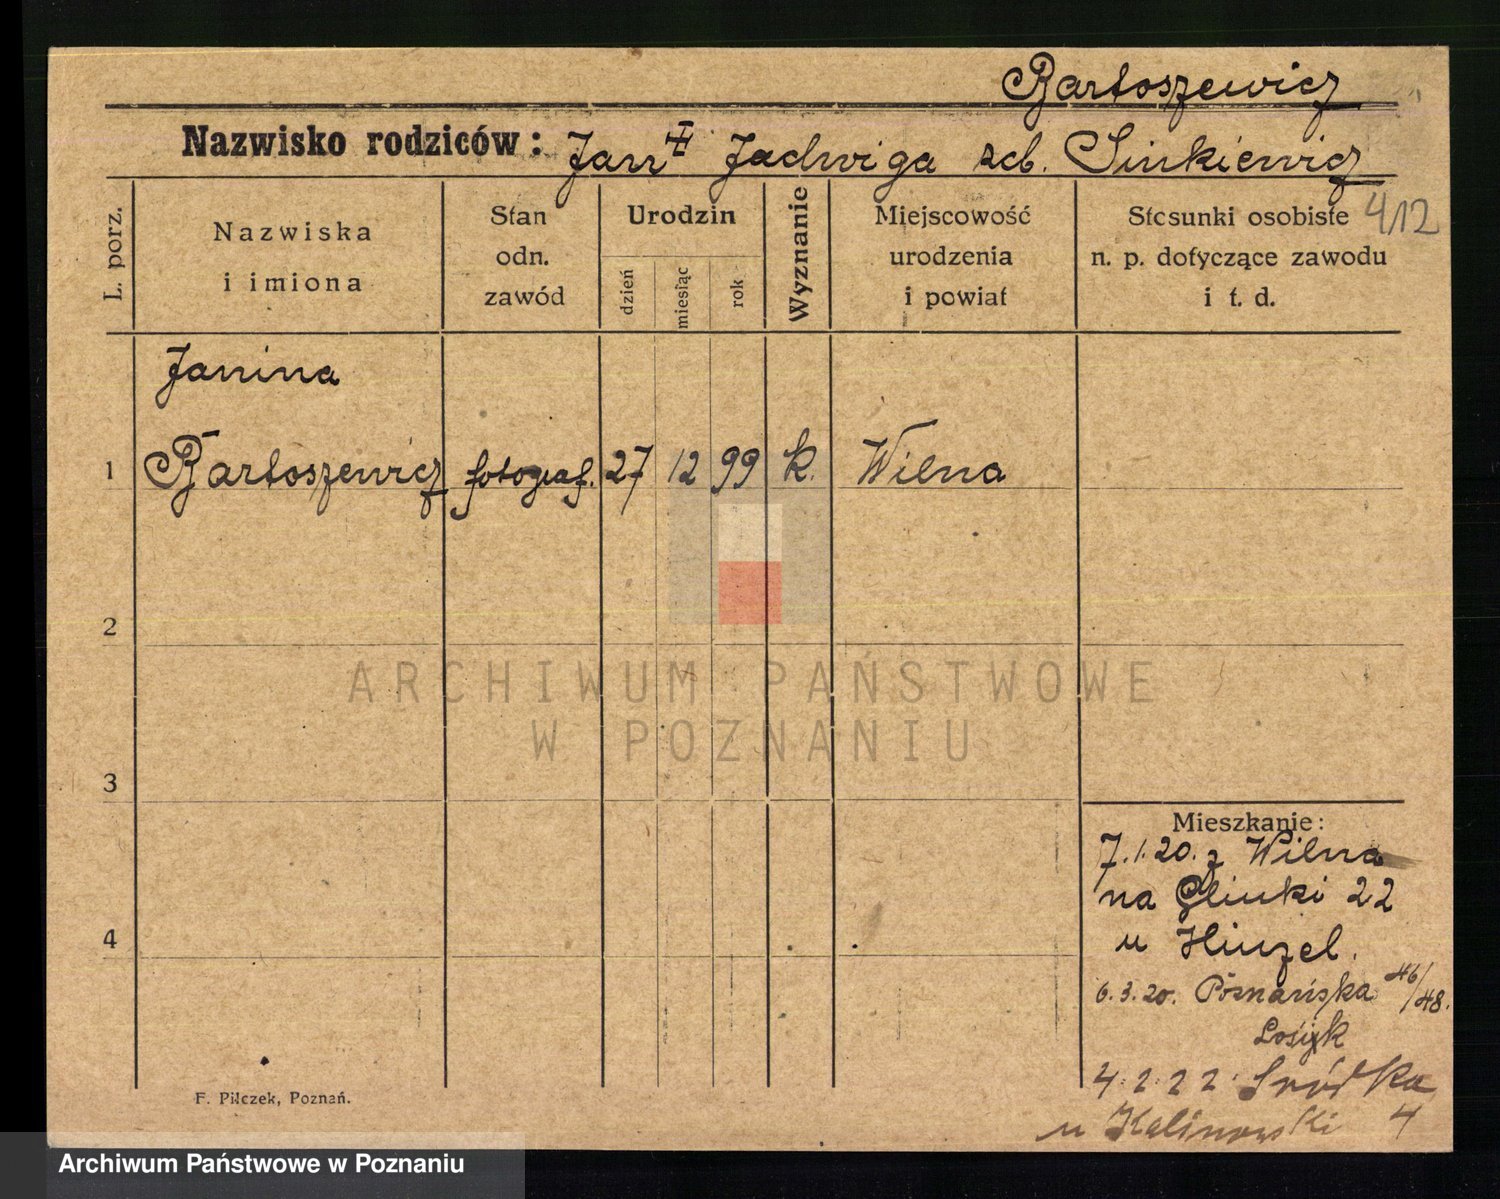 Bartoszewicz
Nazwisko rodziców: Jan Jadwiga Sinkiewicz
412
L. porz.
Nazwiska
i imiona
Stan
odn.
zawód
Urodzin
dzień
miesiąc
rok
Wyznanie
Miejscowość
urodzenia
i powiat
Stosunki osobiste
n. p. dotyczące zawodu
i t. d.
Janina
1 Bartoszewicz fotograf. 27 12 99 k. Wilna
2
3
4
Mieszkanie:
7.1.20. z Wilna
na Glinki 22
u Hinzel.
6.3.20. Poznańska 46/48.
4.2.22 Śródka 4
u Kalinowski
F. Pilczek, Poznań.
ARCHIWUM PAŃSTWOWE
W POZNANIU
Archiwum Państwowe w Poznaniu